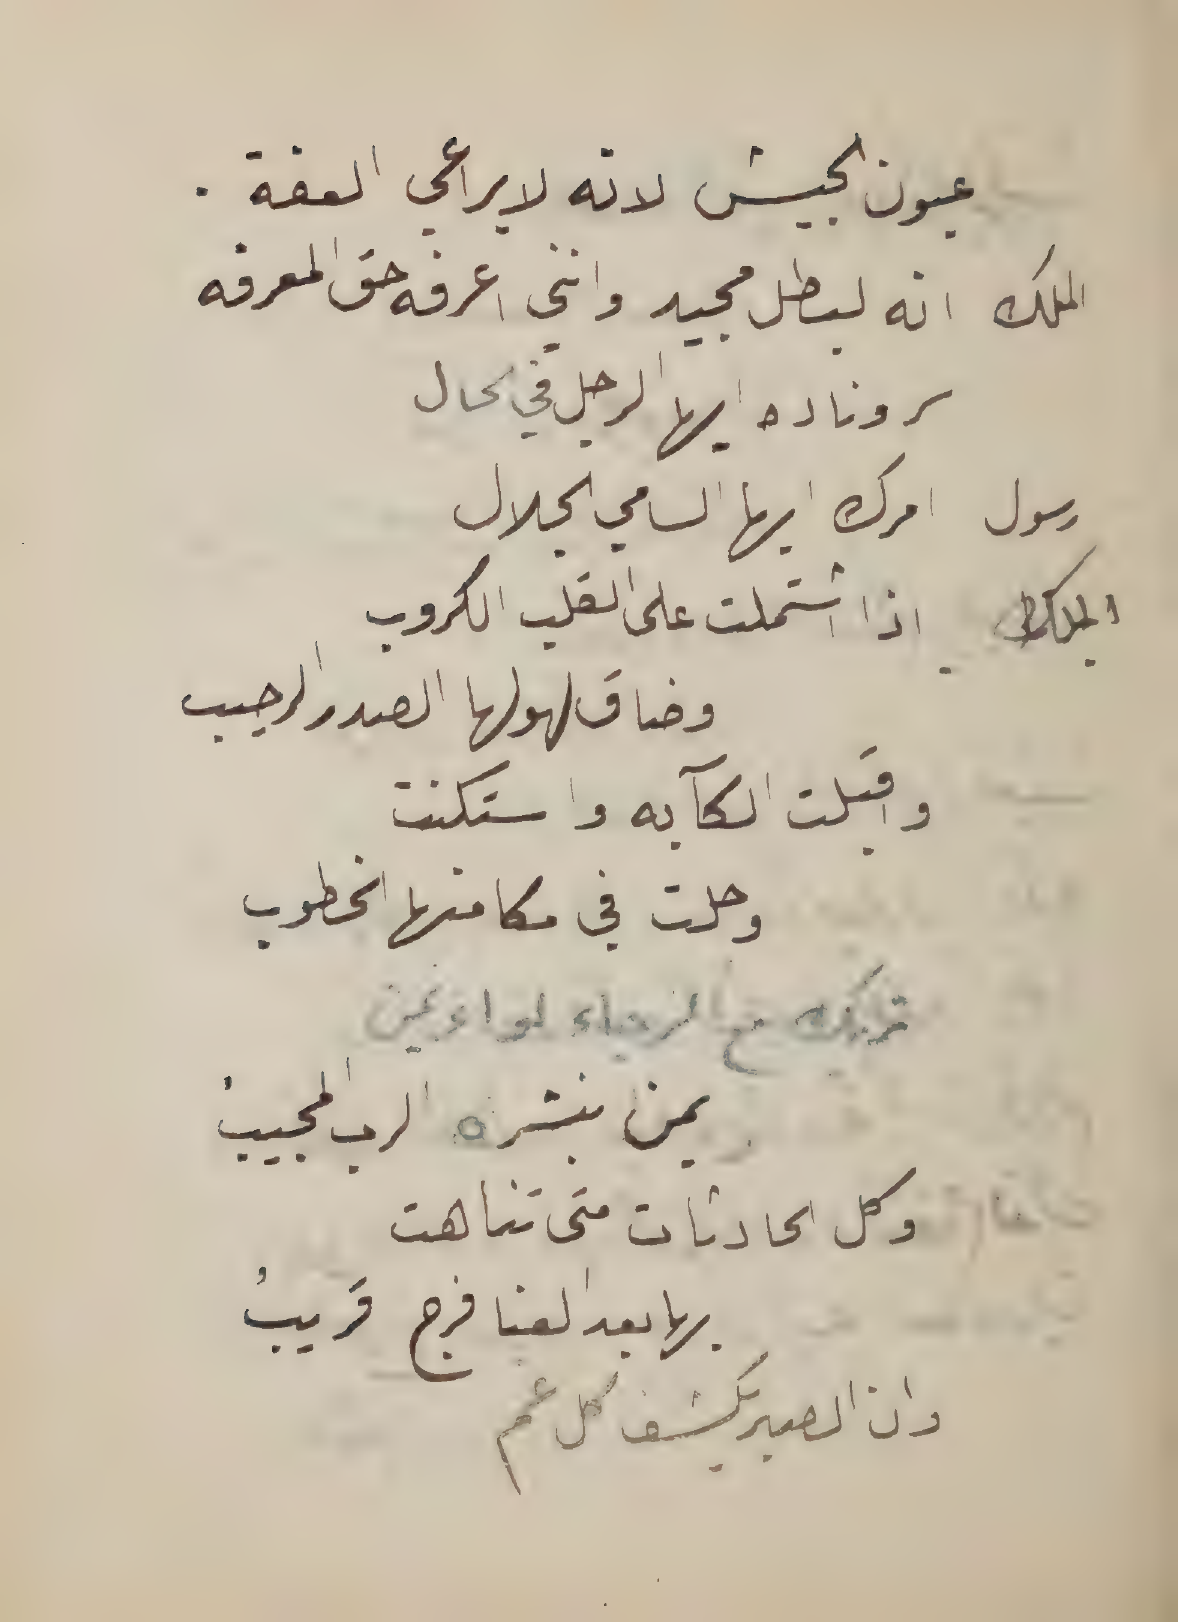 عيون الجيش لانه لا يراعي العفة .
الملك انه لبطل مجيد وانني اعرفه حق المعرفه
سر وناده ايها الرجل في الحال
رسول امرك ايها السامي الجلال
الملك اذا اشتملت على القلب الكروب
وضاق لهولها الصدر الرحيب
واقبلت الكآبه واستكنت
وحلت في مكامنها الخطوب
تريك مع الرجاء لواء يمن
يمن ينشره الرب المجيب
وكل الحادثات متى تناهت
بها بعد العنا فرج قريبُ
وان الصبر يكشف كل غم